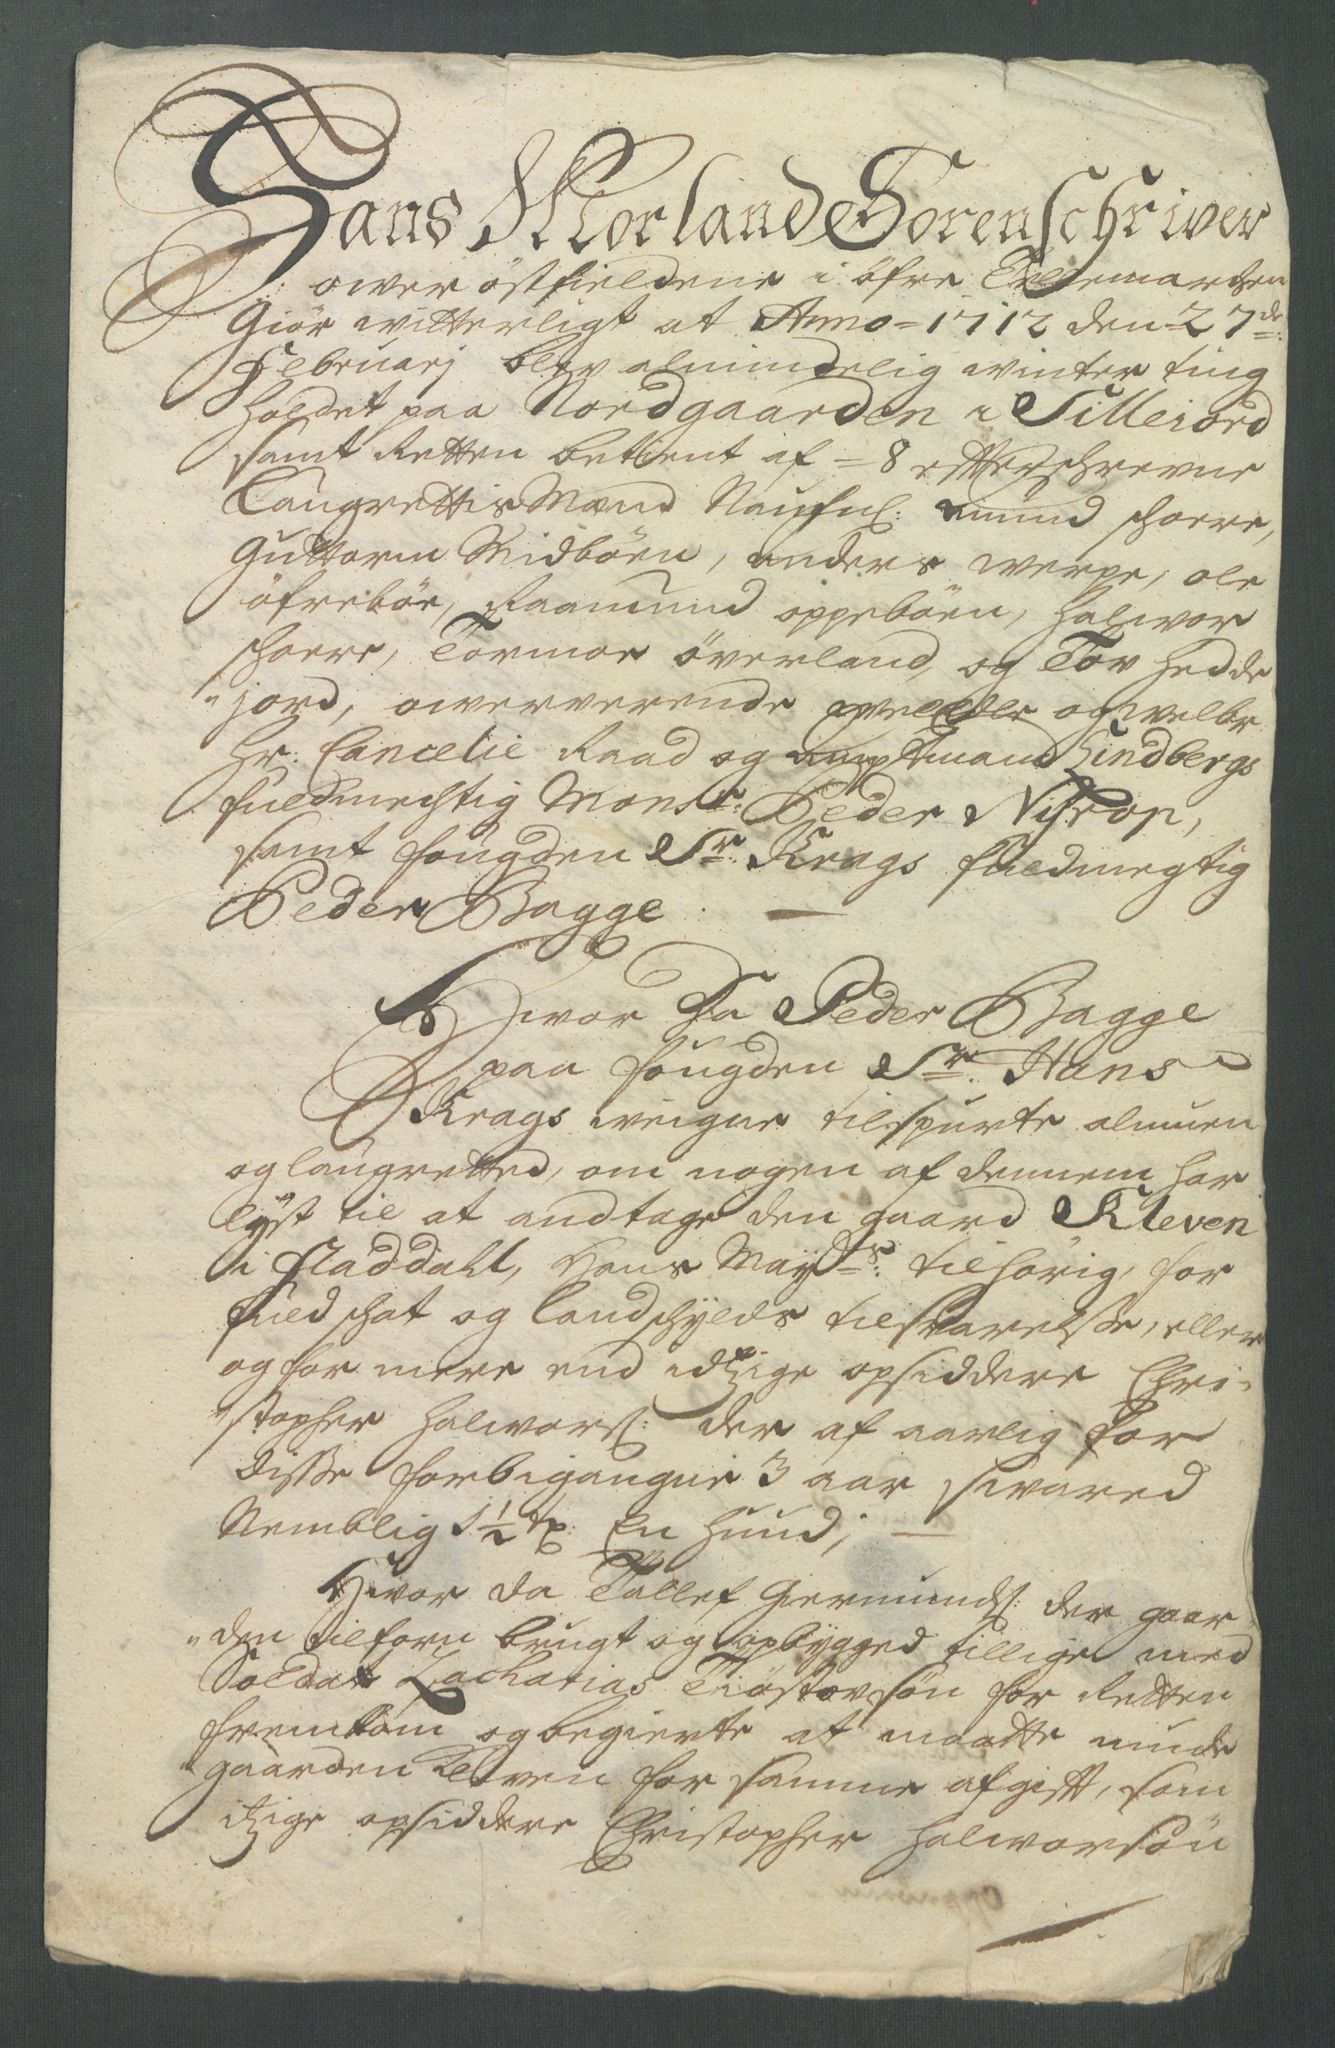 Hans Morland Sorenschriver
ower östfieldene i öfre Tellemarchen
Giör witterligt at Anno 1712 den 27de:
Februarj blev almindelig winter ting
holdet paa Nordgaarden i Silleiord
samt Retten betient af 8 efterschrevne
Laugrettis Mænd Naufnl: amund schorre,
Guttorm Midböen, anders werpe, ole
öfreböe, Raamund oppeböen, Halwor
schorre, Tormoe överland, og Tov Hedde
jord, owerverende welædle og welbr
Hr: Cancelie Raad og amptmand Lindbergs
fuldmechtig Monsr: Peder Nyrop,
samt fougden Sr: Krags fuldmegtig
Peder Bagge.
Hvor Da Peder Bagge
paa fougden Sr: Hans
Krags weigne tilspurte almuen
og laugretted, om nogen af dennem har
lyst til at andtage den gaard Kleven
i Fladdahl, Hans Mayts: tilhörig, for
fuld schat og landschylds tilsvarelse, eller
og for mere end idzige opsiddere Chri-
stopher Halwors: der af aarlig for
disse forbigangne 3 aar swared
Nemblig 1½ En huud;
Hvor da Tallef Giermunds: der gaar-
den tilforn brugt og opbygged tillige med
Soldat Zacharias Tiöstovsön for Retten
fremkom og begierte at maatte nyde
gaarden Kleven for samme afgift, som
itzige opsiddere Christopher Halworsön